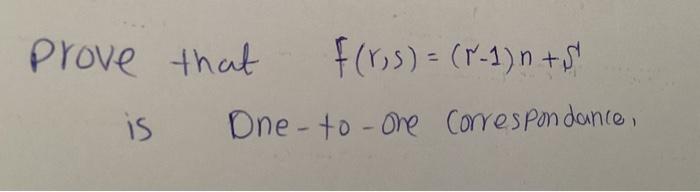 prove that f(r,s) = (r-1)n + s
is One-to-one correspondance.